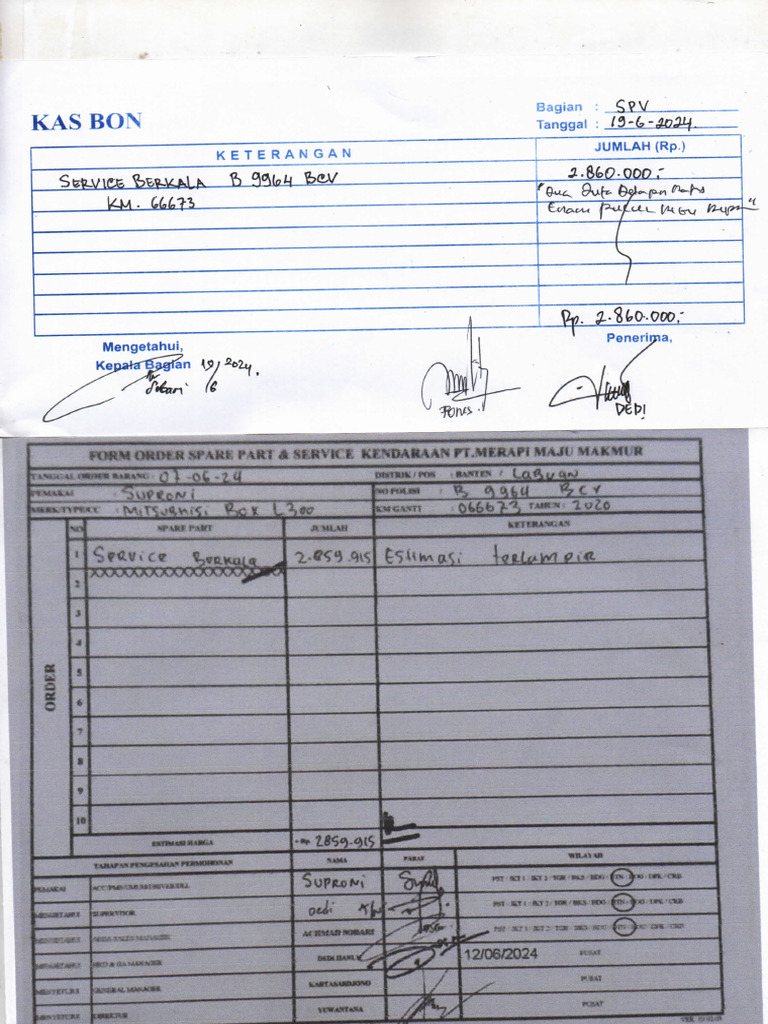 KAS BON
Bagian : SPV
Tanggal : 19-6-2024.
KETERANGAN JUMLAH (Rp.)
SERVICE BERKALA B 9964 BCV 2.860.000;-
KM. 66673 "Dua Juta Delapan Ratus
Enam Puluh Ribu Rupiah"
Rp. 2.860.000;-
Mengetahui, Penerima,
Kepala Bagian 19/6 2024.
DEDI
FORM ORDER SPARE PART & SERVICE KENDARAAN PT.MERAPI MAJU MAKMUR
TANGGAL ORDER BARANG : 07-06-24 DISTRIK / POS : BANTEN / LABUAN
PEMAKAI : SUPRONI NO POLISI : B 9964 BCV
MERK/TYPE/CC : MITSUBHISI BOX L300 KM GANTI : 066673 TAHUN : 2020
NO SPARE PART JUMLAH KETERANGAN
ORDER
1 Service Berkala 2.859.915 Estimasi terlampir
2
3
4
5
6
7
8
9
10
ESTIMASI HARGA Rp 2859.915
TAHAPAN PENGESAHAN PERMOHONAN NAMA PARAF WILAYAH
PEMAKAI SUPRONI PST / JKT 1 / JKT 2 / TGR / BKS / BDG / BTN / BOG / DPK / CRB
MENGETAHUI SUPERVISOR Dedi PST / JKT 1 / JKT 2 / TGR / BKS / BDG / BTN / BOG / DPK / CRB
MENGETAHUI AREA SALES MANAGER ACHMAD SOBARI PST / JKT 1 / JKT 2 / TGR / BKS / BDG / BTN / BOG / DPK / CRB
MENGETAHUI HRD & GA MANAGER 12/06/2024 PUSAT
MENYETUJUI GENERAL MANAGER KARTASARDJONO PUSAT
MENYETUJUI DIREKTUR YUWANTANA PUSAT